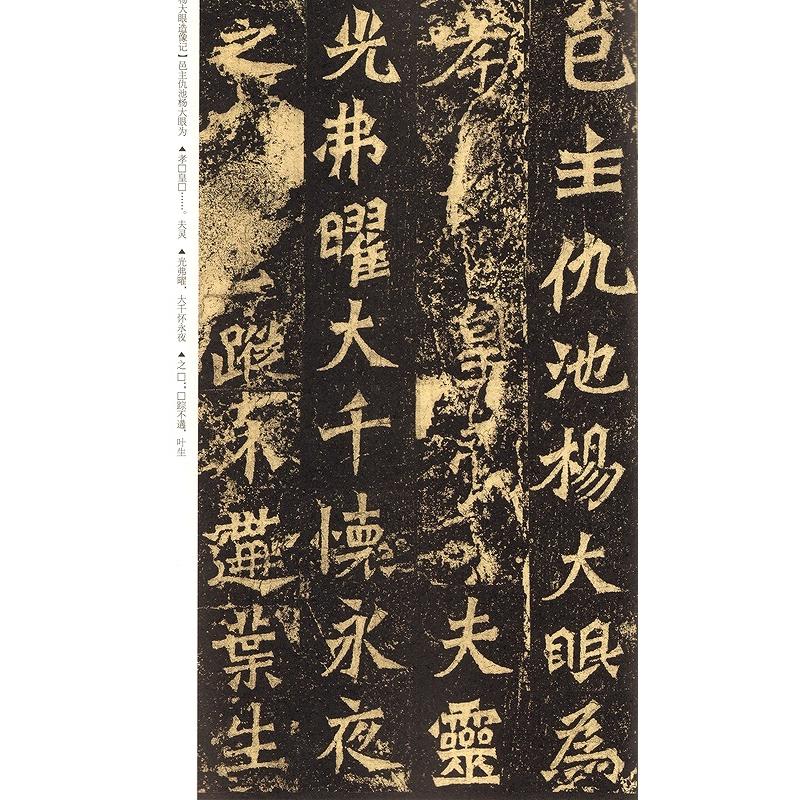 邑主仇池楊大眼為
孝 皇 夫靈
光弗曜大千懷永夜
之 蹤不遘葉生
杨大眼造像记】邑主仇池杨大眼为 ▲孝□皇□……。夫灵 ▲光弗曜，大千怀永夜 ▲之□；□踪不遘，叶生